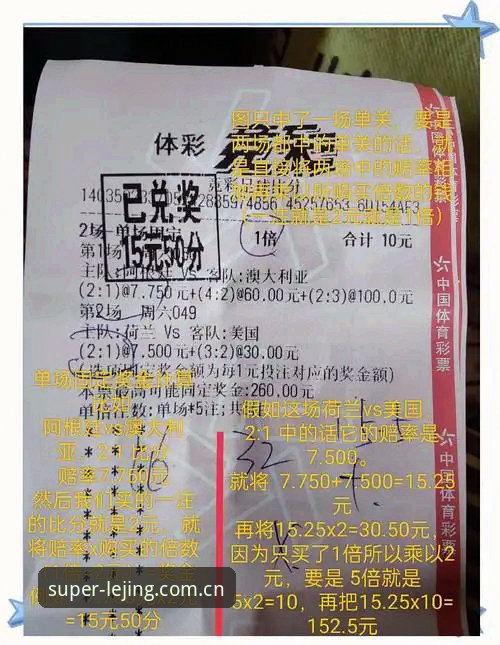 图只中了一场单关，要是
两场都中的单关的话，就
是直接将两场中的赔率相
体彩
已兑奖
15元50分
2场-单场固定
1倍
合计 10元
第1场
主队:阿根廷 Vs 客队:澳大利亚
(2:1)@7.750元+(4:2)@60.00元+(2:3)@100.0元
第2场 周六049
主队:荷兰 Vs 客队:美国
(2:1)@7.500元+(3:2)@30.00元
固定奖金额为每1元投注对应的奖金额)
本票最高可能固定奖金:260.00元
单倍注数:单场*5注;共
中国体育彩票
中国体育彩票
单场固定奖金计算
阿根廷vs澳大利
亚，2:1 比分
赔率7.750元
然后我们买的一注
的比分就是2元，就
将赔率x购买的倍数
=15元50分
假如这场荷兰vs美国
2:1 中的话它的赔率是
7.500。
就将 7.750+7.500=15.25
元
再将15.25x2=30.50元，
因为只买了1倍所以乘以2
元，要是 5倍就是
5x2=10，再把15.25x10=
152.5元
super-lejing.com.cn